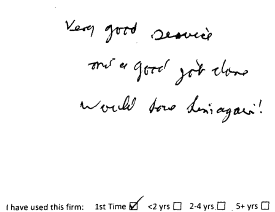 Very good service
and a good job done
would have him again!
I have used this firm: 1st Time ☑ <2 yrs ☐ 2-4 yrs ☐ 5+ yrs ☐